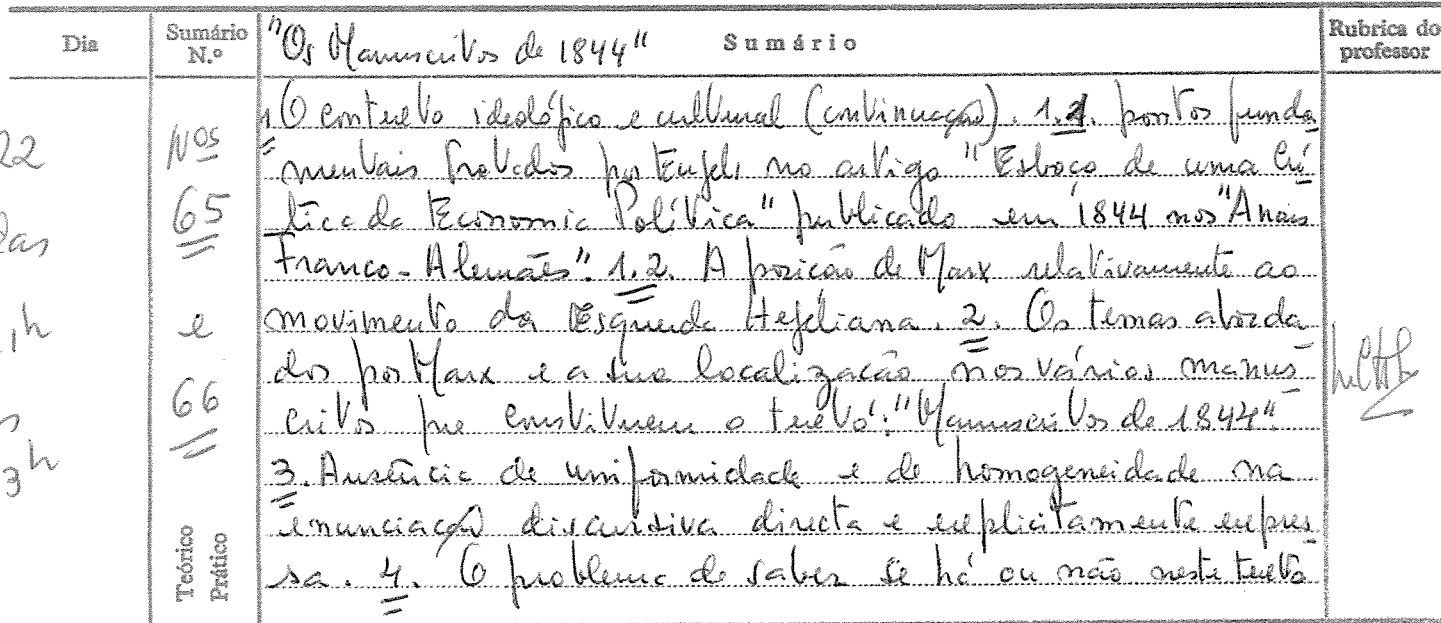 Dia
Sumário N.º
"Os Manuscritos de 1844" Sumário
Rubrica do professor
22
das
1h
3h
Nos
65
e
66
Teórico
Prático
1. O contexto ideológico e cultural (continuação). 1.1. pontos funda
mentais tratados por Engels no artigo "Esboço de uma Crí
tica da Economia Política" publicado em 1844 nos "Anais
Franco-Alemães". 1.2. A posição de Marx relativamente ao
movimento da Esquerda Hegeliana. 2. Os temas aborda
dos por Marx e a sua localização nos vários manus
critos que constituem o texto: "Manuscritos de 1844"
3. Ausência de uniformidade e de homogeneidade na
enunciação discursiva directa e explicitamente expres
sa. 4. O problema de saber se há ou não neste texto